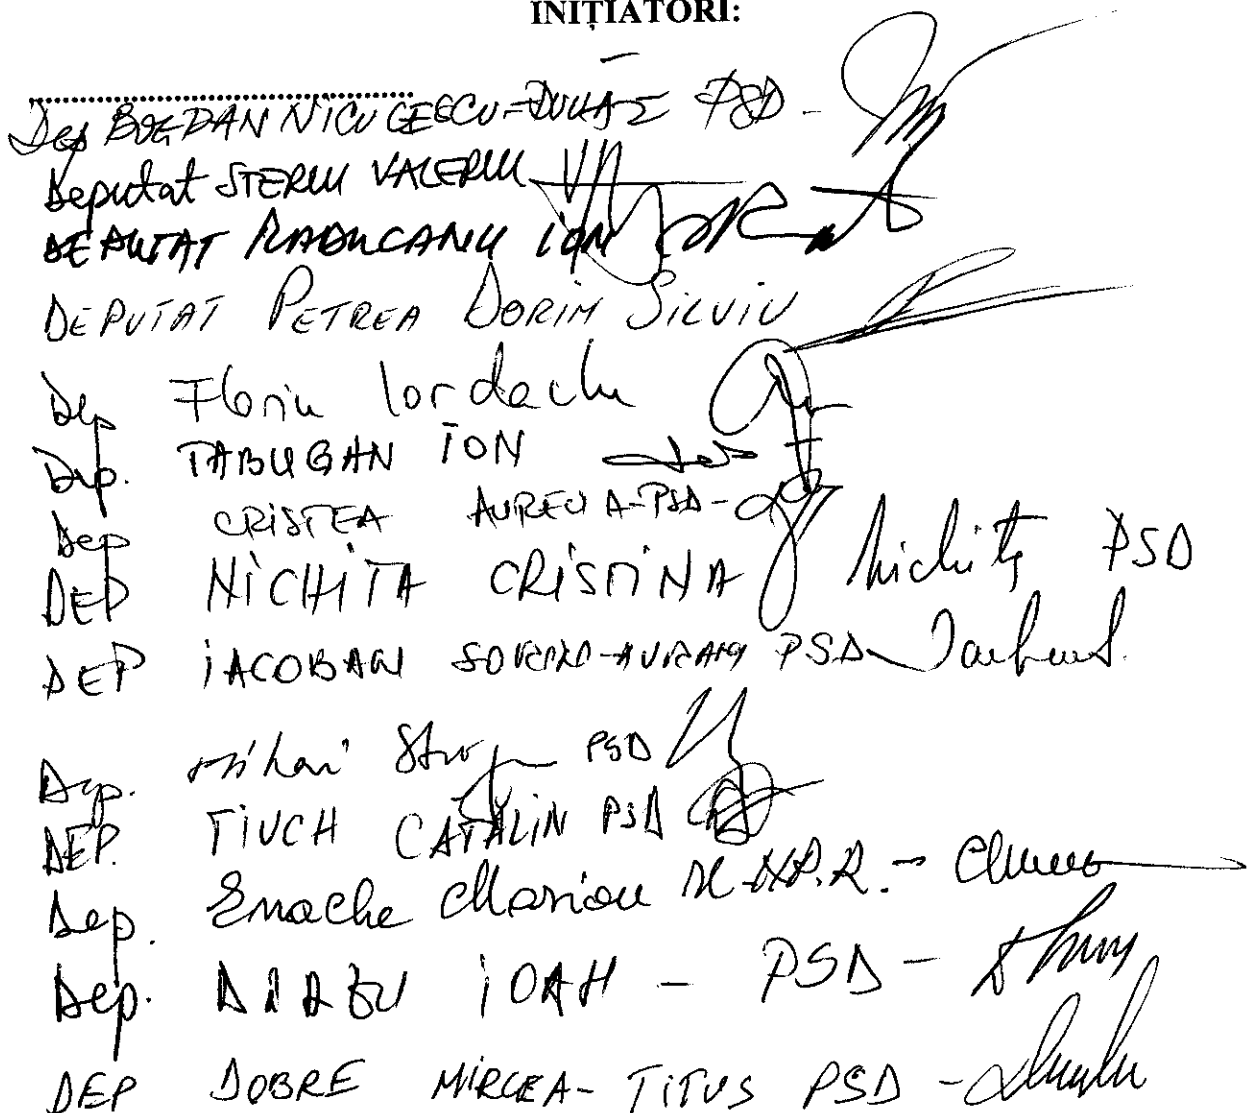 INIȚIATORI:
Dep BOGDAN NICULESCU-DUVĂZ PSD -
Deputat STERIU VALERIU
DEPUTAT RADUCANU ION
DEPUTAT PETREA DORIN SILVIU
Dep Florin Iordache
Dep. TABUGAN ION
Dep CRISTEA AURELIA-PSD-
DEP NICHITA CRISTINA Nichita PSD
DEP IACOBAN SORIN-AVRAM PSD-
Dep. Mihai PSD
DEP. TIUCH CATALIN PSD
Dep. Enache Marian U.N.P.R. -
Dep. DÎRZU IOAN - PSD -
DEP DOBRE MIRCEA-TITUS PSD -